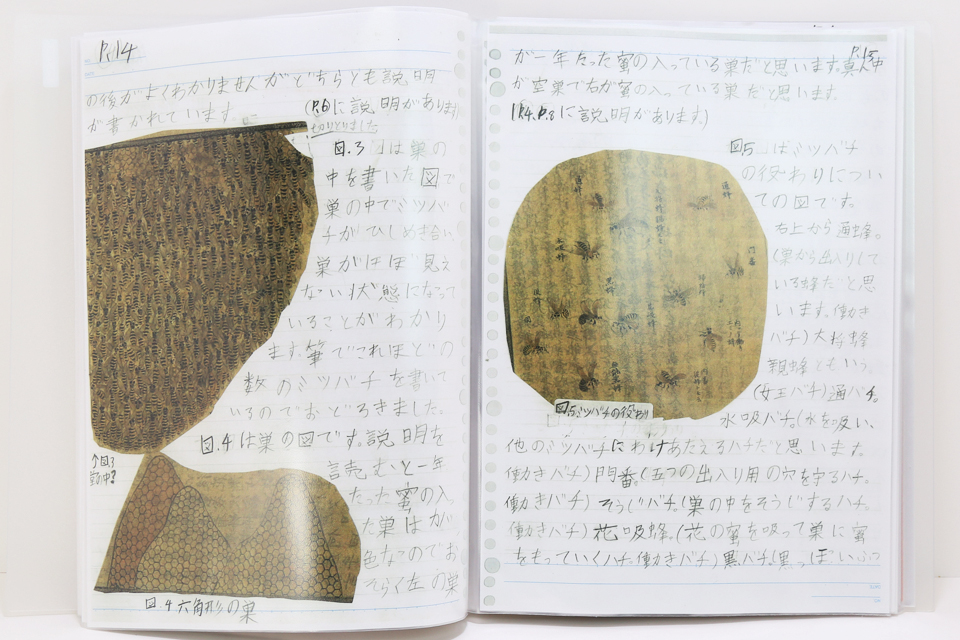 P.14
の後がよくわかりませんがどちらとも説明
が書かれています。
(P.6に説明があります)
切りとりました
図.3 は巣の
中を書いた図で
巣の中でミツバ
チがひしめき合い
巣がほぼ見え
ない状態になって
いることがわかり
ます。筆でこれほどの
数のミツバチを書いて
いるのでおどろきました。
図.4は巣の図です。説明を
読むと一年
たった蜜の入
た巣はが
色なのでお
そらく左の巣
↑図3
図.4 六角形の巣
P.15
が一年たった蜜の入っている巣だと思います。真ん中
が空巣で右が蜜の入っている巣だと思います。
(P.4、P.8に説明があります)
図5 はミツバチ
の役わりについ
ての図です。
右上から通蜂。
(巣から出入りして
いる蜂だと思
います。働き
バチ)大将蜂
親蜂ともいう。
(女王バチ)通バチ。
水吸バチ。(水を吸い、
他のミツバチにわけあたえるハチだと思います。
働きバチ)門番。(五つの出入り用の穴を守るハチ。
働きバチ)そうじバチ。(巣の中をそうじするハチ。
働きバチ)花吸蜂。(花の蜜を吸って巣に蜜
をもっていくハチ。働きバチ)黒バチ。(黒っぽいふつ
図5 ミツバチの役わり